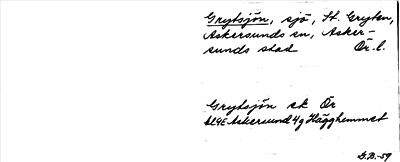 Grytsjön, sjö, St. Gryten,
Askersunds sn, Asker-
sunds stad Ör. l.
Grytsjön ek Ör
Askersund 4g Hägghemmet
G.B.-59